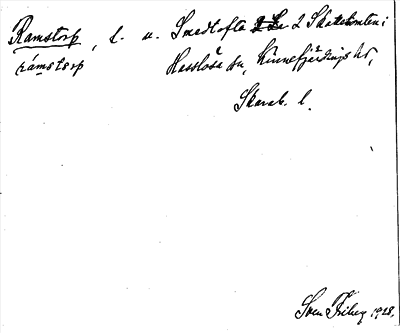 Ramstorp, t. u. Smedtofta 2 Skattehmten i
ramstorp Hasslösa sn, Kinnefjärdings hd,
Skarab. l.
Sven Friberg 1928.